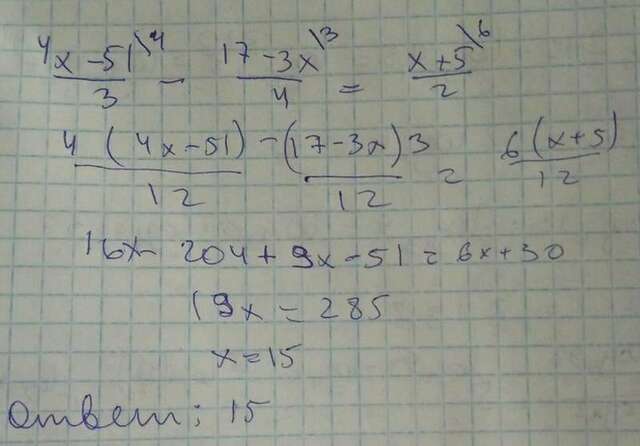 4x-51\4 / 3 - 17-3x\3 / 4 = x+5\6 / 2
4(4x-51) / 12 - (17-3x)3 / 12 = 6(x+5) / 12
16x-204+9x-51=6x+30
19x=285
x=15
Ответ: 15